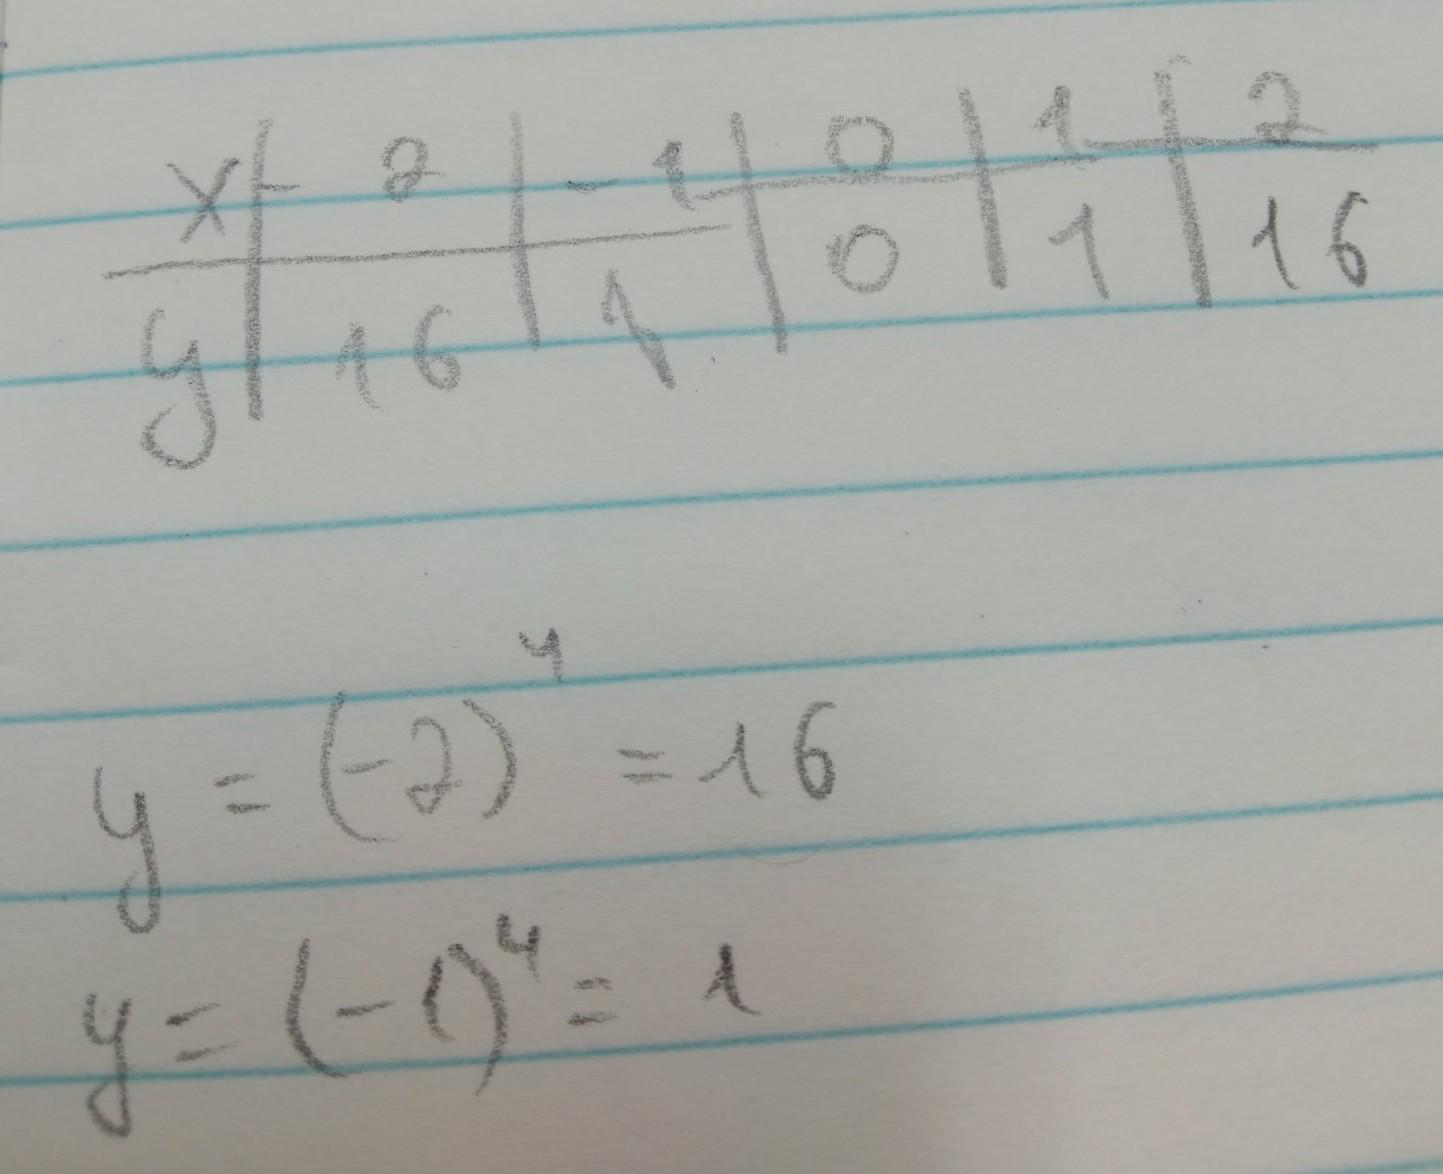 x | -2 | -1 | 0 | 1 | 2
y | 16 | 1 | 0 | 1 | 16
y = (-2)⁴ = 16
y = (-1)⁴ = 1